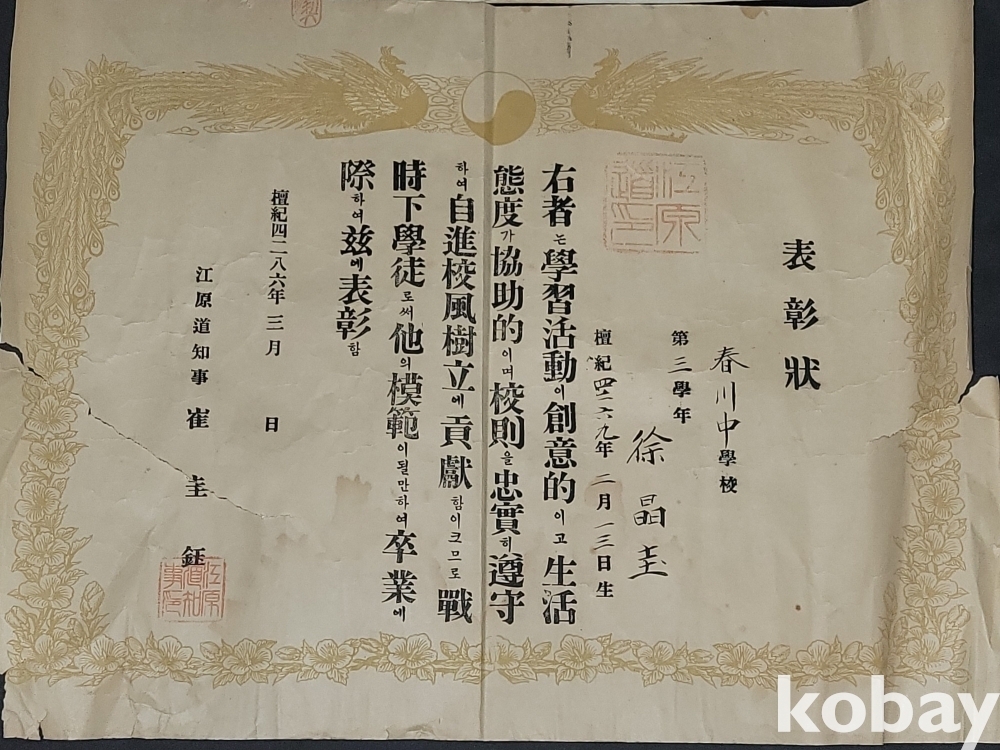 表彰狀
春川中學校
第三學年
徐晶圭
檀紀四二六九年二月一三日生
右者는學習活動이創意的이고生活
態度가協助的이며校則을忠實히遵守
하여自進校風樹立에貢獻함이크므로戰
時下學徒로써他의模範이될만하여卒業에
際하여玆에表彰함
檀紀四二八六年三月 日
江原道知事崔圭鈺
江原道印
江原道知事印
kobay